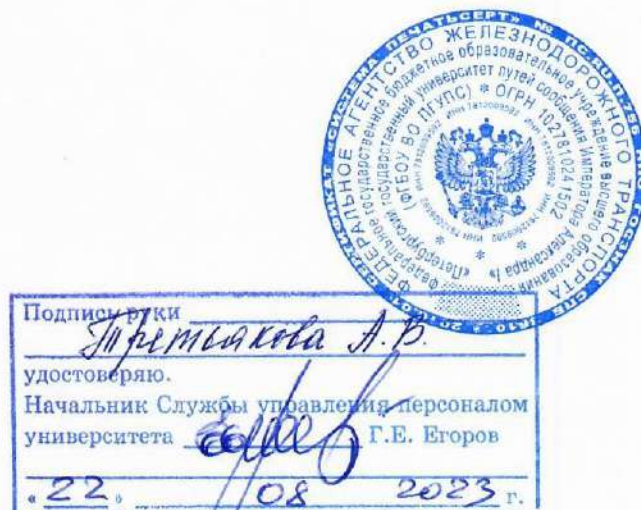 СЕРТИФИКАТ «СИСТЕМА ПЕЧАТЬСЕРТ» № ПС.RU.П.756
ФЕДЕРАЛЬНОЕ АГЕНТСТВО ЖЕЛЕЗНОДОРОЖНОГО ТРАНСПОРТА
Федеральное государственное бюджетное образовательное учреждение высшего образования
«Петербургский государственный университет путей сообщения Императора Александра I»
(ФГБОУ ВО ПГУПС) * ОГРН 1027810241502
ИНН 7812009592
Подпись руки
Третьякова А.В.
удостоверяю.
Начальник Службы управления персоналом
университета Г.Е. Егоров
«22» 08 2023 г.